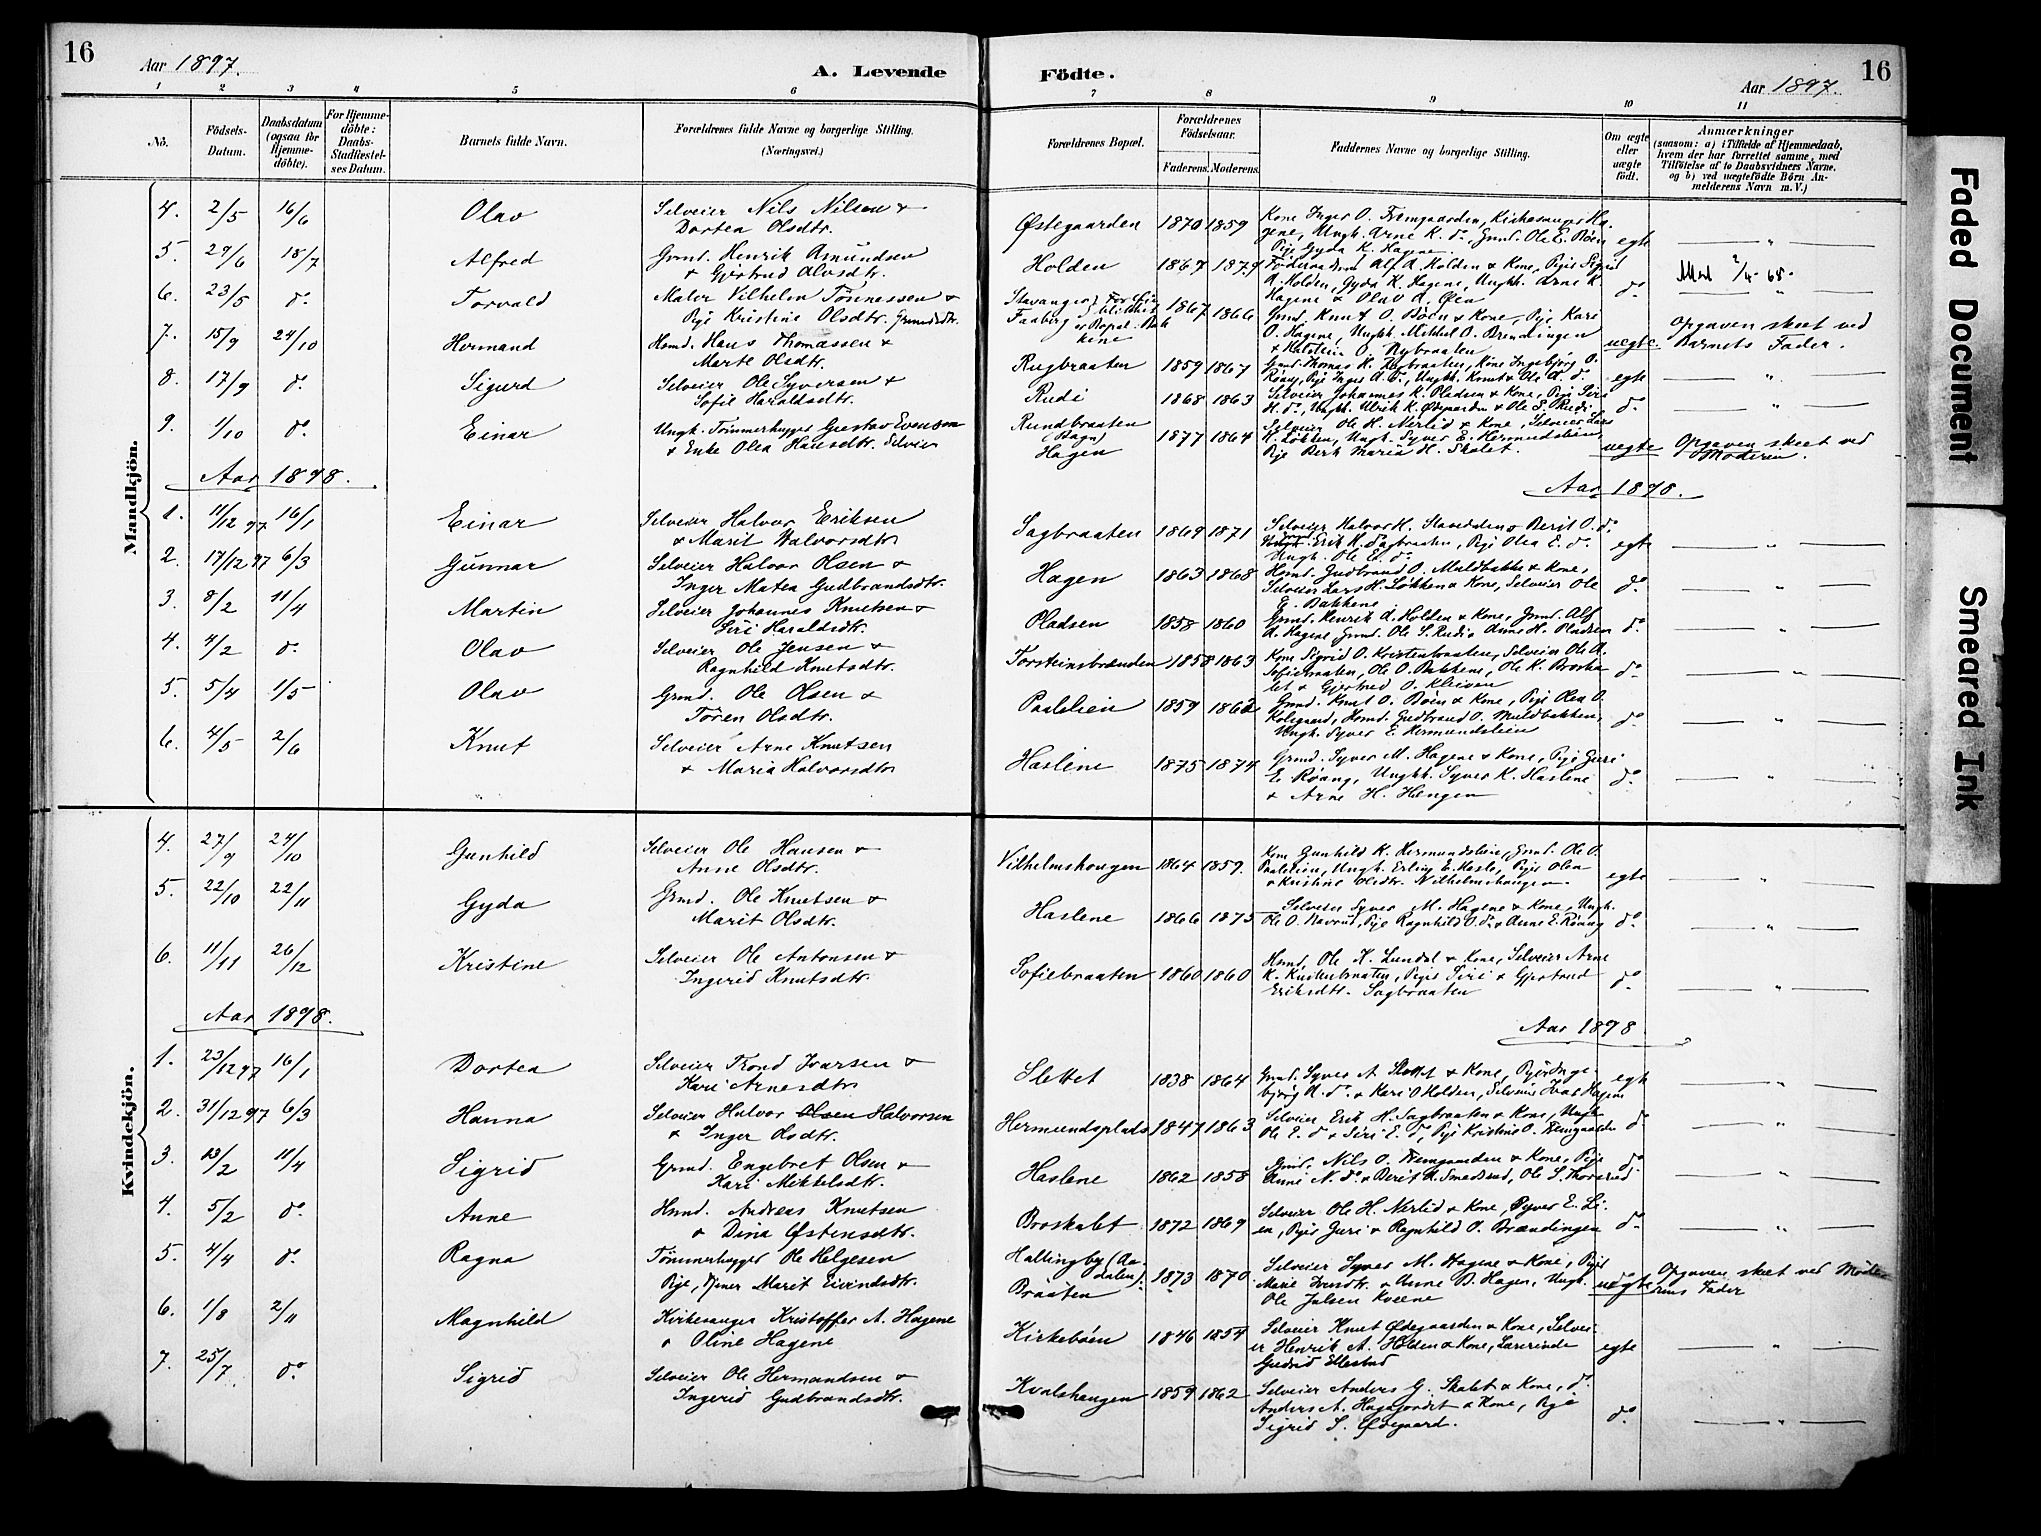 16
Aar 1897.
A. Levende
Födte.
Aar 1897.
16
1 2 3 4 5 6 7 8 9 10 11
Nö.
Födsels-
Datum.
Daabsdatum
(ogsaa for
Hjemme-
döbte).
For Hjemme-
döbte:
Daabs-
Stadfæstel-
ses Datum.
Barnets fulde Navn.
Forældrenes fulde Navne og borgerlige Stilling.
(Næringsvei.)
Forældrenes Bopæl.
Forældrenes
Födselsaar.
Faderens. Moderens.
Faddernes Navne og borgerlige Stilling.
Om ægte
eller
uægte
födt.
Anmærkninger
(saasom: a) i Tilfælde af Hjemmedaab,
hvem der har forrettet samme, med
Tilföielse af to Daabsvidners Navne,
og b) ved uægtefödte Börn An-
melderens Navn m. V.)
Mandkjön.
4. 2/5 16/6 Olav
Selveier Nils Nilsen &
Dortea Olsdtr.
Østegaarden 1870 1859
Kone Inger O. Fremgaarden, Kirkesanger Ha-
gene, Ungk. Arne K. do, Grmd. Ole E. Bøen
Pige Gyda K. Hagene.
egte
5. 29/6 18/7 Alfred
Grmd. Henrik Amundsen
& Gjertrud Alvsdtr.
Holden 1867 1879
Føderaadsm. Alf A. Holden & Kone, Pige Sigrid
A. Holden, Gyda K. Hagene, Ungkk. Arne K.
Hagene & Olav A. Øen
do
6. 23/5 do Torvald
Maler Vilhelm Tönnessen &
Pige Kristine Olsdtr. Grmdsdtr.
Stavanger
Faaberg
1867 1866
Grmd. Knut O. Bøen & Kone, Pige Kari
O. Hagene, Ungkk. Mikkel O. Brendingen
uegte.
Opgaven skeet ved
Barnets Fader.
7. 15/9 24/10 Hermand
Hsmd. Hans Thomassen &
Marte Olsdtr.
Rugbraaten 1859 1867
egte
8. 17/9 do Sigurd
Selveier Ole Syversen &
Sofie Haraldsdtr.
Rudi 1868 1863
Selveier Johannes K. Pladsen & Kone, Pige Siri
H. do, Ungkk. Ulrik K. Ødegaarden & Ole S. Rudi
do
9. 1/10 do Einar
Ungk. Tömmerhugger Gustav Evensen
& Enke Olea Hansdtr. Selveier
Rundbraaten
(Bagn)
Hagen
1877 1864
Selveier Ole H. Nerlid & Kone, Selveier Lars
H. Løkken, Ungk. Syver E. Hermundslien,
Pige Berte Maria H. Skalet.
uegte
Opgaven skeet ved
Moderen.
Aar 1898.
Aar 1898.
1. 11/12 97 16/1 Einar
Selveier Halvor Eriksen
& Marit Halvorsdtr
Sagbraaten 1869 1871
Erik H. Sagbraaten, Pige Olea E. do.
Ungk. Ole E. do
egte
2. 17/12 97 6/3 Gunnar
Selveier Halvor Olsen &
Inger Matea Gudbrandsdtr.
Hagen 1863 1868
Hsmd. Gudbrand O. Muldbakke & Kone,
Selveier Lars H. Løkken & Kone, Selveier Ole
E. Bakkene
do
3. 8/2 11/4 Martin
Selveier Johannes Knutsen &
Siri Haraldsdtr.
Pladsen 1858 1860
Grmd. Henrik A. Holden & Kone, Grmd. Alf
A. Hagene, Grmd. Ole S. Rudi & Anne H. Pladsen
do
4. 4/2 do Olav
Selveier Ole Jensen &
Ragnhild Knutsdtr.
Torsteinsbrænden 1858 1863
Kone Sigrid O. Kristenbraaten, Selveier Ole A.
Sofiebraaten, Ole O. Bakkene, Ole K. Broska-
let & Gjertrud O. Kleiven
do
5. 5/4 1/5 Olav
Grmd. Ole Olsen &
Tören Olsdtr.
Paalslien 1859 1862
Grmd. Knut O. Bøen & Kone, Pige Olea O.
Kolsgaard, Hsmd. Gudbrand O. Muldbakken,
Ungk. Syver E. Hermundslien
do
6. 4/5 2/6 Knut
Selveier Arne Knutsen
& Maria Halvorsdtr
Haslene 1875 1874
Grmd. Syver M. Hagene & Kone, Pige Guri
E. Roang, Ungkk. Syver K. Haslene
& Arne H. Hængen
do
Kvindekjön.
4. 27/9 24/10 Gunhild
Selveier Ole Hansen &
Anne Olsdtr.
Vilhelmshougen 1864 1859.
Kone Gunhild K. Hermundslien, Grmd. Ole O.
Paalslien, Ungk. Erling E. Hasle, Pige Olea
& Kristine Olsdtr. Vilhelmshaugen
egte
5. 22/10 22/11 Gyda
Grmd. Ole Knutsen &
Marit Olsdtr.
Haslene 1866 1875
Selveier Syver M. Hagene & Kone, Ungk.
Ole O. Navrud, Pige Ragnhild O. do & Anne E. Roang
do
6. 11/11 26/12 Kristine
Selveier Ole Antonsen &
Ingerid Knutsdtr.
Sofiebraaten 1860 1860
Hsmd. Ole K. Lundal & Kone, Selveier Arne
K. Kristenbraaten, Pige Siri & Gjertrud
Eriksdtr. Sagbraaten
do
Aar 1898.
Aar 1898
1. 23/12 97 16/1 Dortea
Selveier Trond Ivarsen &
Kari Arnesdtr
Slettet 1838 1864
Grmd. Syver A. Slettet & Kone, Pige Inge-
björg A. do & Kari O Holden, Selveier Ivar Hagene
egte
2. 31/12 97 6/3 Hanna
Selveier Halvor Olsen Halvorsen
& Inger Olsdtr.
Hermundsplads 1847 1863
Selveier Erik H. Sagbraaten & Kone, Ungk.
Ole E. do & Siri E. do, Pige Kristine O. Fremgaarden
do
3. 13/2 11/4 Sigrid
Grmd. Engebret Olsen &
Kari Mikkelsdtr.
Haslene 1862 1858
Grmd. Nils O. Fremgaarden & Kone, Pige
Anne N. do & Berit A. Smedsrud, Ole S. Thorsrud
do
4. 5/2 do Anne
Hsmd. Andreas Knutsen
& Dina Østensdtr.
Broskalet 1872 1869
Selveier Ole H. Nerlid & Kone, Syver E. Li-
en, Pige Guri & Ragnhild O. Brændingen
do
5. 4/4 do Ragna
Tömmerhugger Ole Helgesen
Pige, Tjener Marit Eivindsdtr.
Hallingby (Aa-
dalen).
Braaten
1873 1870
Selveier Syver M. Hagene & Kone, Pige
Marie & Anne B. Hagen, Ungk.
Ole Julsen Kveene
uegte
Opgaven skeet ved Mode-
rens Fader
6. 1/8 2/11 Magnhild
Kirkesanger Kristoffer A. Hagene
& Oline Hagene
Kirkebøen 1846 1854
Selveier Knut Ødegaarden & Kone, Selvei-
er Henrik A. Holden & Kone, Lærerinde
Gudrid Ellestad
egte
7. 25/7 do Sigrid
Selveier Ole Hermandsen &
Ingerid Gudbrandsdtr.
Kvalshaugen 1859 1862
Selveier Anders G. Skalet & Kone, do
Anders A. Hagajordet & Kone, Pige
Sigrid S. Ødegaard.
do
Faded Document
Smeared Ink